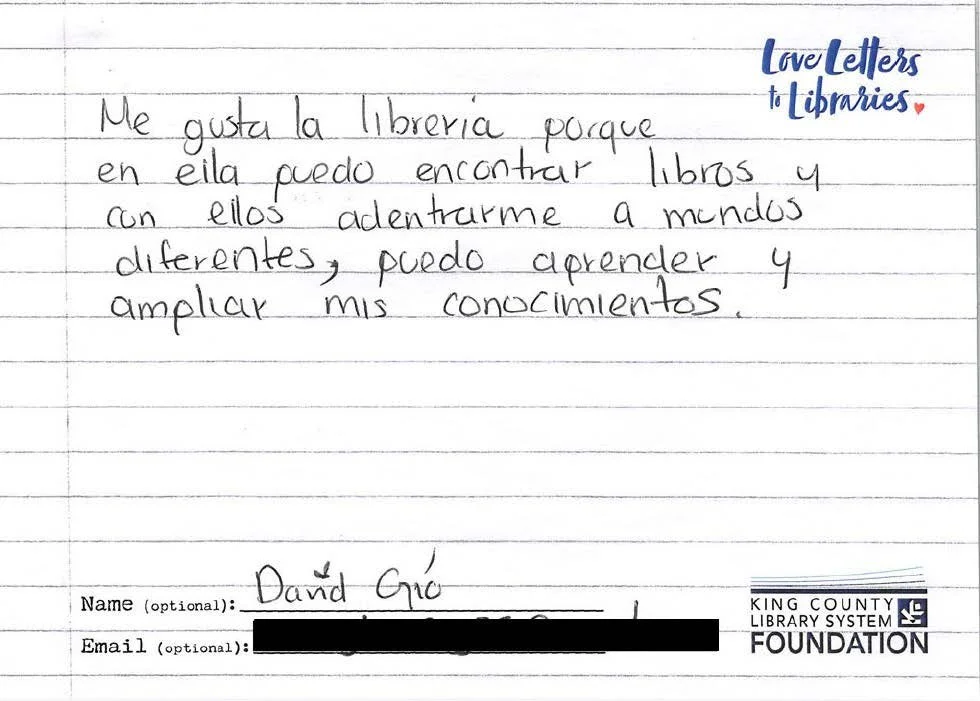 Love Letters
to Libraries
Me gusta la librería porque
en ella puedo encontrar libros y
con ellos adentrarme a mundos
diferentes, puedo aprender y
ampliar mis conocimientos.
Name (optional): David Gió
Email (optional):
KING COUNTY
LIBRARY SYSTEM
FOUNDATION